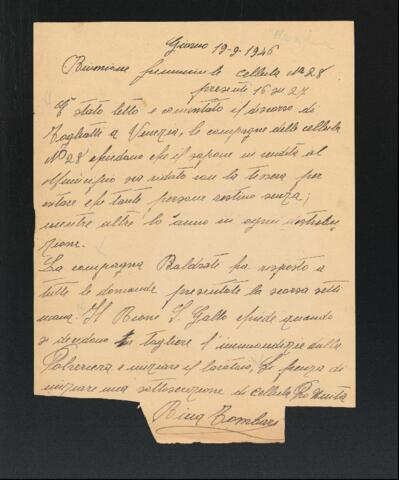 Giorno 19-9-1946
Riunione femminile cellula No 28
presenti 16 su 27
E' stato letto e comentato il discorso di
Togliatti a Venezia, le compagne della cellula
No 28 chiedono che il sapone in vendita al
Municipio sia ridato con la tessera per
evitare che tante persone restino senza;
mentre altre lo anno in ogni distribu-
zione.
La compagna Baldisati ha risposto a
tutte le domande presentate la scorsa setti
mana. Il Rione S. Gallo chiede quando
si decidono a tagliere l'immondizia dalla
Polveriera e iniziare il lavatoio. Si pensa di
iniziare una sottoscrizione di cellula Pro Unità
Rina